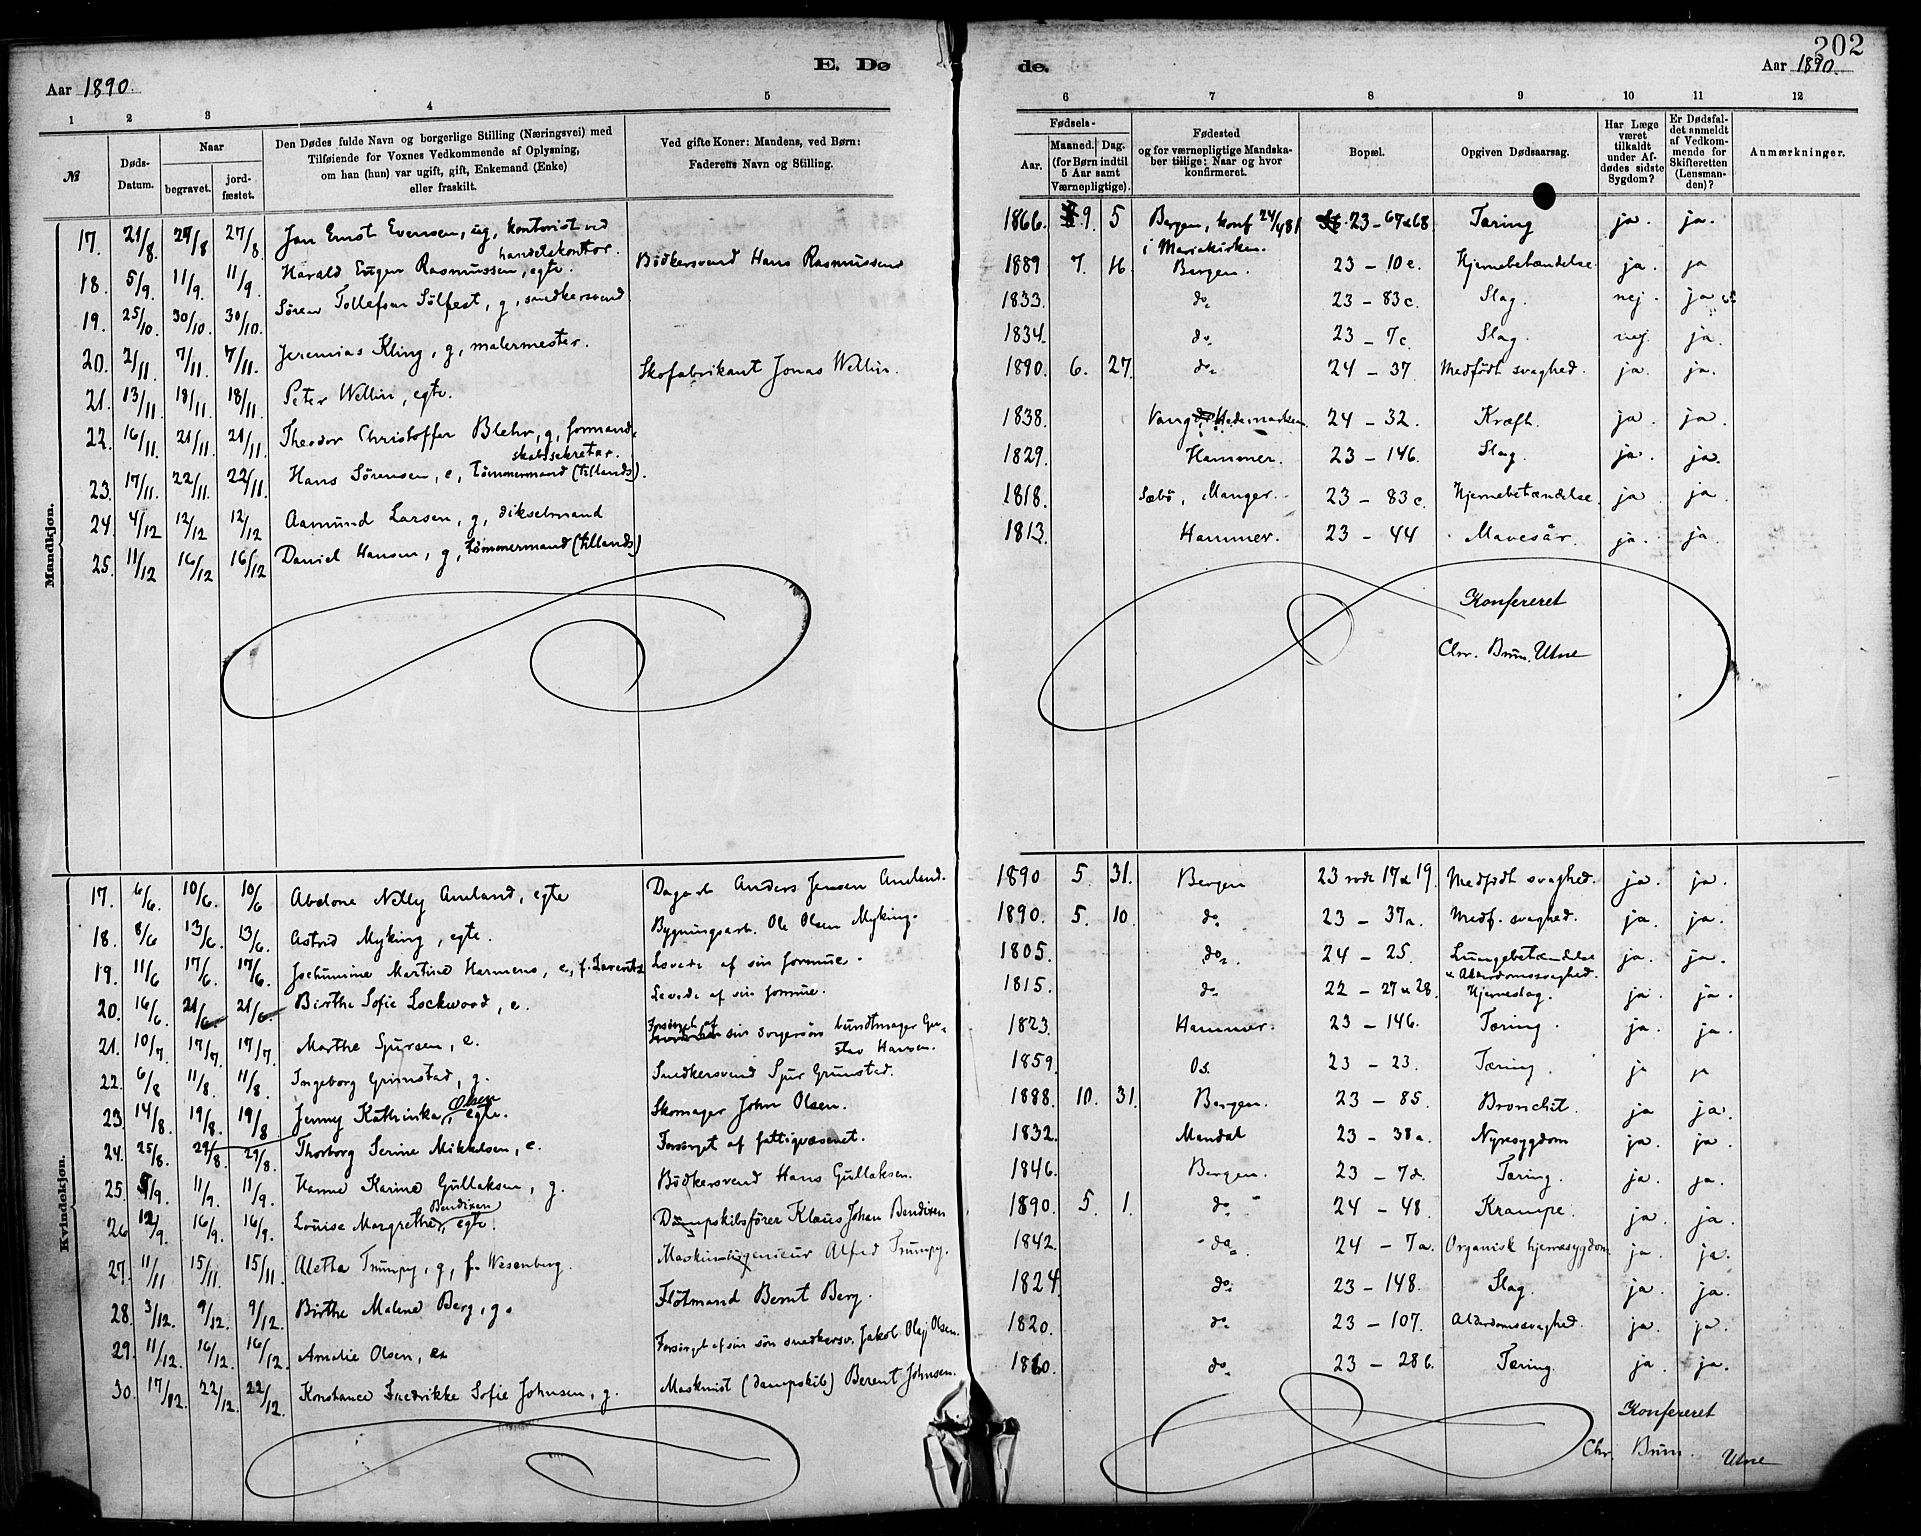 202
E. Dø de.
Aar 1890.
Aar 1890.
1 2 3 4 5 6 7 8 9 10 11 12
№
Døds-Datum.
Naar
begravet.
jord-fæstet.
Den Dødes fulde Navn og borgerlige Stilling (Næringsvei) med
Tilføiende for Voxnes Vedkommende af Oplysning,
om han (hun) var ugift, gift, Enkemand (Enke)
eller fraskilt.
Ved gifte Koner: Mandens, ved Børn:
Faderens Navn og Stilling.
Fødsels-
Aar.
Maaned. Dag.
(for Børn indtil
5 Aar samt
Værnepligtige).
Fødested
og for værnepligtige Mandska-
ber tillige: Naar og hvor
konfirmeret.
Bopæl.
Opgiven Dødsaarsag.
Har Læge
været
tilkaldt
under Af-
dødes sidste
Sygdom?
Er Dødsfal-
det anmeldt
af Vedkom-
mende for
Skifteretten
(Lensman-
den)?
Anmærkninger.
Mandkjøn.
17. 21/8. 27/8 27/8. Jan Ernst Evensen, ug, kontorist ved handelskontor. 1866. 9. 5 Bergen, konf 24/4 81 i Mariakirken. 23 – 67 & 68 Tæring ja. ja.
18. 5/9. 11/9. 11/9. Harald Eugen Rasmussen, egte. Bødkersvend Hans Rasmussen 1889 7. 16. Bergen. 23 – 10 e. Hjernebetændelse. ja. ja
19. 25/10. 30/10. 30/10. Søren Tollefsen Sølfest, g, snedkersvend. 1833. do. 23 – 83 c. Slag. nej. ja
20. 2/11. 7/11. 7/11. Jeremias Kling, g, malermester. 1834. do. 23 – 7 c. Slag. nej. ja.
21. 13/11. 18/11. 18/11. Peter Wellin, egte. Skofabrikant Jonas Wellin. 1890. 6. 27. do. 24 – 37 Medfødt svaghed. ja. ja.
22. 16/11. 21/11. 21/11. Theodor Christoffer Blehr, g, formand-skabssekretær. 1838. Vang, Hedemarken 24 – 32. Kræft. ja. ja.
23. 17/11. 22/11. 22/11. Hans Sørensen, e, tømmermand (tillands). 1829. Hammer. 23 – 146. Slag. ja. ja.
24. 4/12 12/12 12/12 Aamund Larsen, g, dikselmand 1818. Sæbø, Manger. 23 – 83 c. Hjernebetændelse. ja. ja.
25. 11/12 16/12 16/12 Daniel Hansen, g, tømmermand (tillands) 1813. Hammer. 23 – 44 Mavesår. ja. ja.
Konfereret
Chr. Brun. Utne
Kvindekjøn.
17. 6/6. 10/6. 10/6 Abelone Nelly Amland, egte Dagarb. Anders Jensen Amland. 1890 5. 31. Bergen 23 rode 17 & 19. Medfødt svaghed. ja. ja.
18. 8/6 13/6. 13/6. Astrid Myking, egte. Bygningsarb. Ole Olsen Myking. 1890. 5. 10. do. 23 – 37 a. Medf. svaghed. ja. ja.
19. 11/6 17/6. 17/6. Jochumine Martine Harmens, e, f. Larentz Levede af sin formue. 1805. do. 24 – 25. Lungebetændelse & Alderdomssvaghed. ja. ja.
20. 16/6. 21/6. 21/6. Birthe Sofie Lockwood, e. Levede af sin formue. 1815. do. 22 – 27 & 28. Hjerneslag. ja. ja.
21. 10/7. 17/7. 17/7. Marthe Sjursen, e. Forsørget af sin svigersøn bundtmager Gustav Hansen. 1823. Hammer. 23 – 146. Tæring. ja. ja.
22. 6/8 11/8. 11/8. Ingeborg Grimstad, g. Snedkersvend Sjur Grimstad. 1859. Os. 23 – 23. Tæring. ja ja
23. 14/8. 19/8. 19/8 Jenny Kathinka Olsen, egte. Skomager John Olsen. 1888. 10. 31. Bergen. 23 – 85. Bronchit. ja ja.
24. 25/8. 29/8. 29/8. Thorborg Serine Mikkelsen, e. Forsørget af fattigvæsenet. 1832. Mandal 23 – 38 a. Nyresygdom ja. ja.
25. 5/9. 11/9. 11/9. Hanne Karine Gullaksen, g. Bødkersvend Hans Gullaksen. 1846. Bergen. 23 – 7 d. Tæring. ja. ja.
26 12/9. 16/9. 16/9. Louise Margrethe Bendixen, egte. Dampskibsfører Klaus Johan Bendixen 1890. 5. 1. do 24 – 48. Krampe. ja. ja.
27. 11/11 15/11. 15/11. Aletta Trumpy, g, f. Wesenberg. Maskiningenieur Alfred Trumpy. 1842. do. 24 – 7 a. Organisk hjernesygdom ja. ja.
28. 3/12. 9/12. 9/12. Birthe Malene Berg, g. Fløtmand Bernt Berg. 1824. do. 23 – 148. Slag. ja. ja.
29. 11/12. 16/12. 16/12. Amalie Olsen, e. Forsørget af sin søn snedkersv. Jakob Olaj Olsen. 1820. do. 23 – 107. Alderdomssvaghed. ja. ja.
30. 17/12. 22/12. 22/12. Konstance Fredrikke Sofie Johnsen, g. Maskinist (dampskib) Berent Johnsen. 1860. do. 23 – 28 b. Tæring. ja. ja.
Konfereret
Chr. Brun. Utne